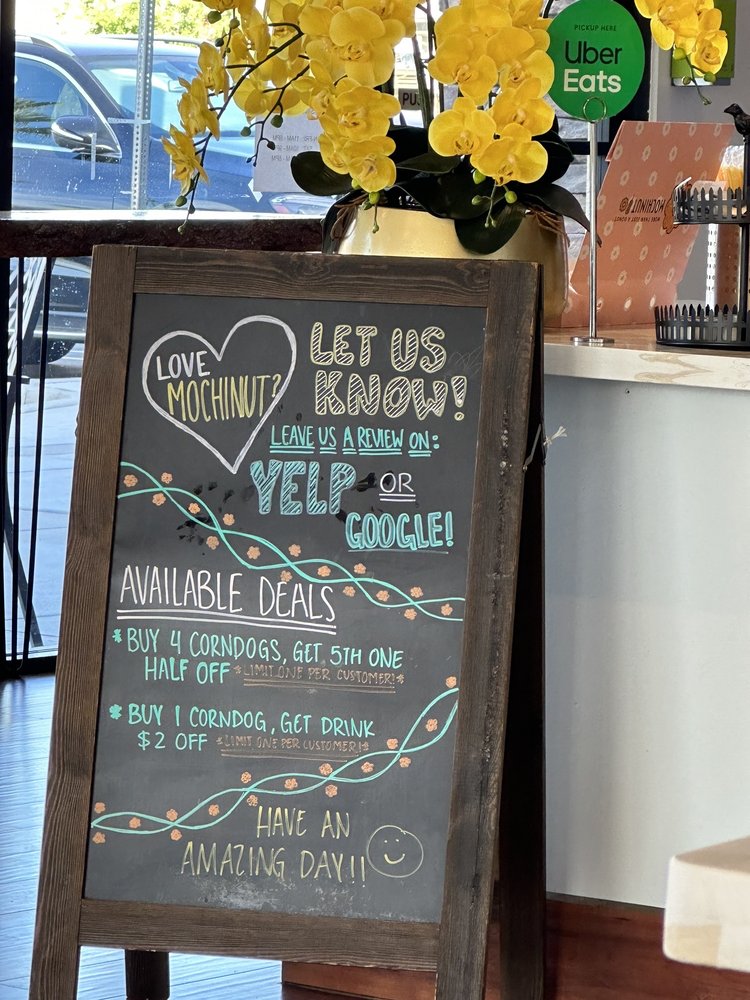 PICKUP HERE
Uber
Eats
PU
MOCHINUT
LOVE
MOCHINUT?
LET US
KNOW!
LEAVE US A REVIEW ON:
YELP OR
GOOGLE!
AVAILABLE DEALS
* BUY 4 CORNDOGS, GET 5TH ONE
HALF OFF *LIMIT ONE PER CUSTOMER!*
* BUY 1 CORNDOG, GET DRINK
$2 OFF *LIMIT ONE PER CUSTOMER!*
HAVE AN
AMAZING DAY!!